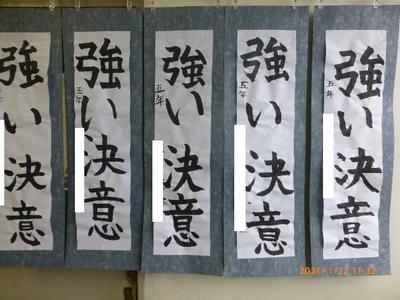 強い決意
五年
強い決意
五年
強い決意
五年
強い決意
五年
強い決意
2021/1/22 11:32